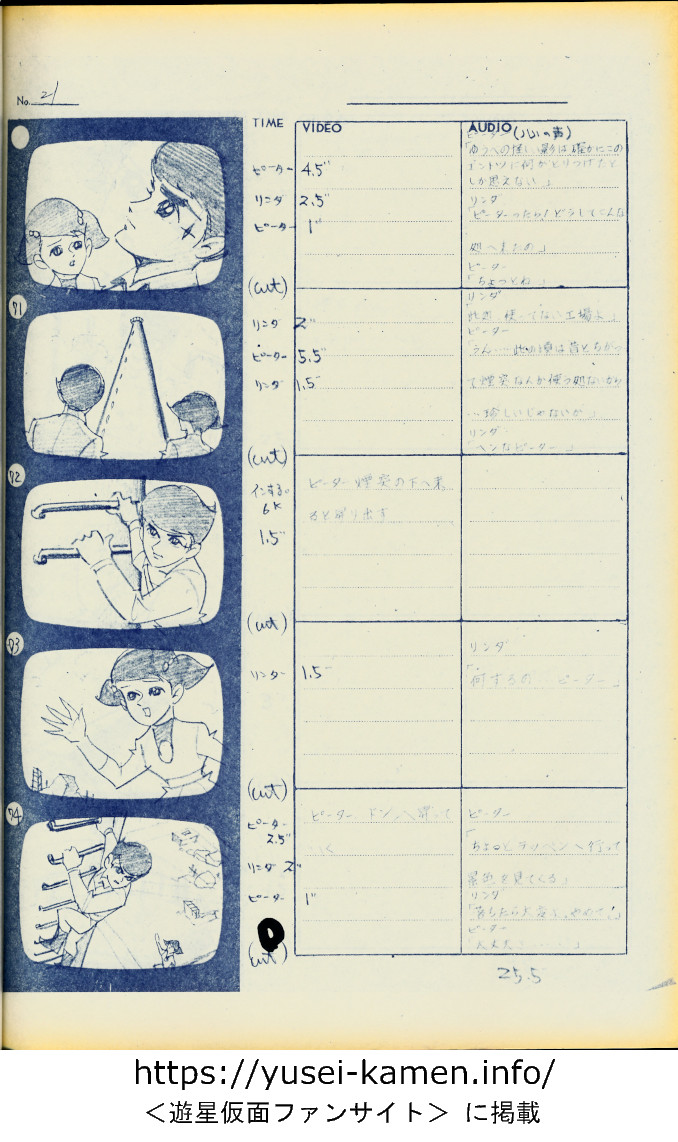 No. 21
TIME VIDEO AUDIO (心の声)
ピーター 4.5"
リンダ 2.5"
ピーター 1"
(cut)
ピーター
「ゆうべの怪しい影は確かにこの
エントツに何かとりつけたと
しか思えない」
リンダ
「ピーターったら、どうしてこんな
処へきたの」
ピーター
「ちょっとね」
71
リンダ 2"
ピーター 5.5"
リンダ 1.5"
(cut)
リンダ
使ってない工場よ」
ピーター
「うん……此の頃は昔とちがっ
て煙突なんか使う処ないから
…珍しいじゃないか」
リンダ
「ヘンなピーター」
72
インする。
6K
1.5"
(cut)
ピーター煙突の下へ来
ると登り出す
73
リンダー 1.5"
(cut)
リンダ
「何するの ピーター」
74
ピーター
2.5"
リンダ 2"
ピーター 1"
(cut)
ピーター ドンへ登って
いく
ピーター
「ちょっとテッペンへ行って
景色を見てくる」
リンダ
「落ちたら大変よ、やめて!」
ピーター
25.5
https://yusei-kamen.info/
＜遊星仮面ファンサイト＞ に掲載